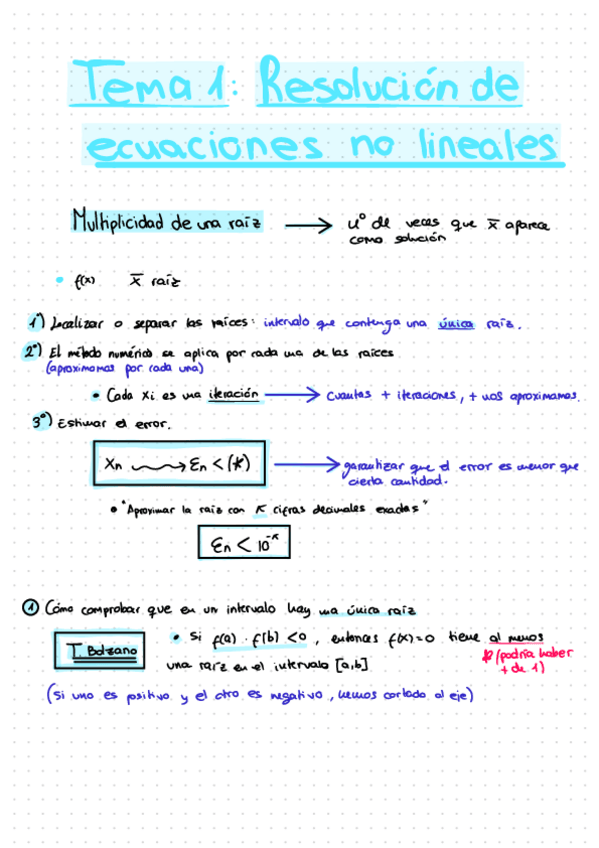 Tema 1: Resolución de
ecuaciones no lineales
Multiplicidad de una raíz → nº de veces que x̄ aparece
como solución
• f(x) x̄ raíz
1º) Localizar o separar las raíces: intervalo que contenga una única raíz.
2º) El método numérico se aplica por cada una de las raíces
(aproximamos por cada una)
• Cada xi es una iteración → cuantas + iteraciones, + nos aproximamos.
3º) Estimar el error.
Xn ⇝ εn < (*) → garantizar que el error es menor que
cierta cantidad.
• "Aproximar la raíz con k cifras decimales exactas"
εn < 10^-k
① Cómo comprobar que en un intervalo hay una única raíz
T. Bolzano • Si f(a) · f(b) < 0, entonces f(x)=0 tiene al menos
una raíz en el intervalo [a,b]
(podría haber
+ de 1)
(si uno es positivo y el otro es negativo, hemos cortado al eje)